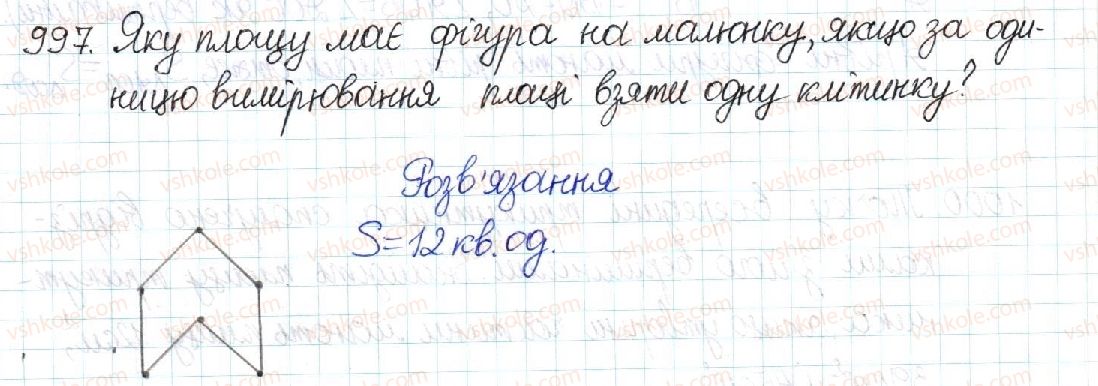 997. Яку площу має фігура на малюнку, якщо за оди-
ницю вимірювання площі взяти одну клітинку?
Розв'язання
S=12 кв. од.